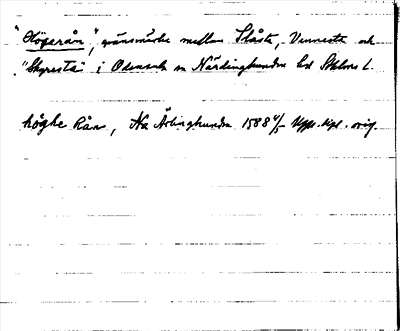 "Högarån", gränsmärke mellan Slåsta, Vennesta och
"Skyrsta" i Odensala sn Närdinghundra hd Sthlms l.
höghe Rån, Na Ärlinghundra 1588 4/5 Upps. dipl. orig.